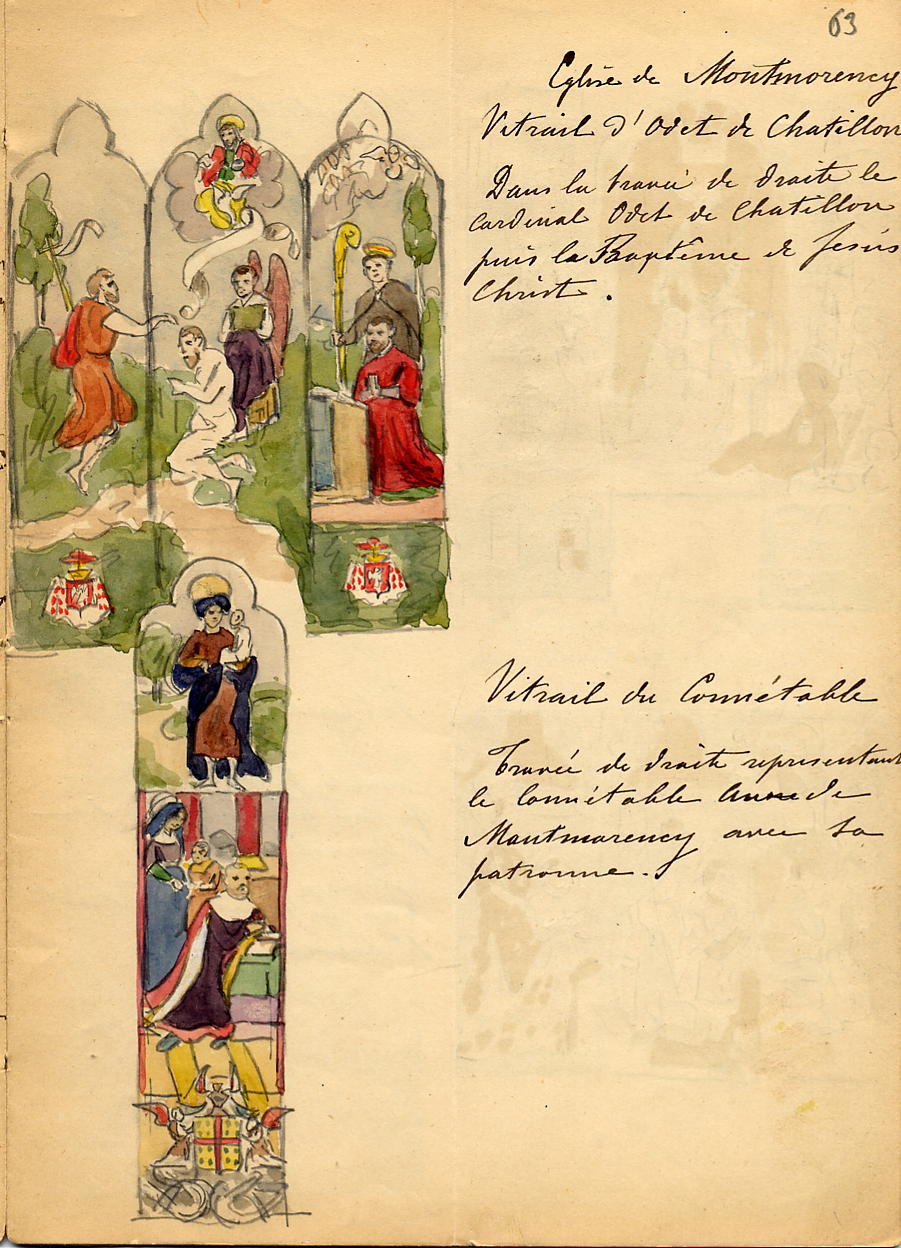 63
Eglise de Montmorency
Vitrail d'Odet de Chatillon
Dans la travée de droite le
cardinal Odet de Chatillon
puis le Baptême de Jesús
Christ.
Vitrail du Connétable
Travée de droite representant
le Connétable Anne de
Montmorency avec sa
patronne.